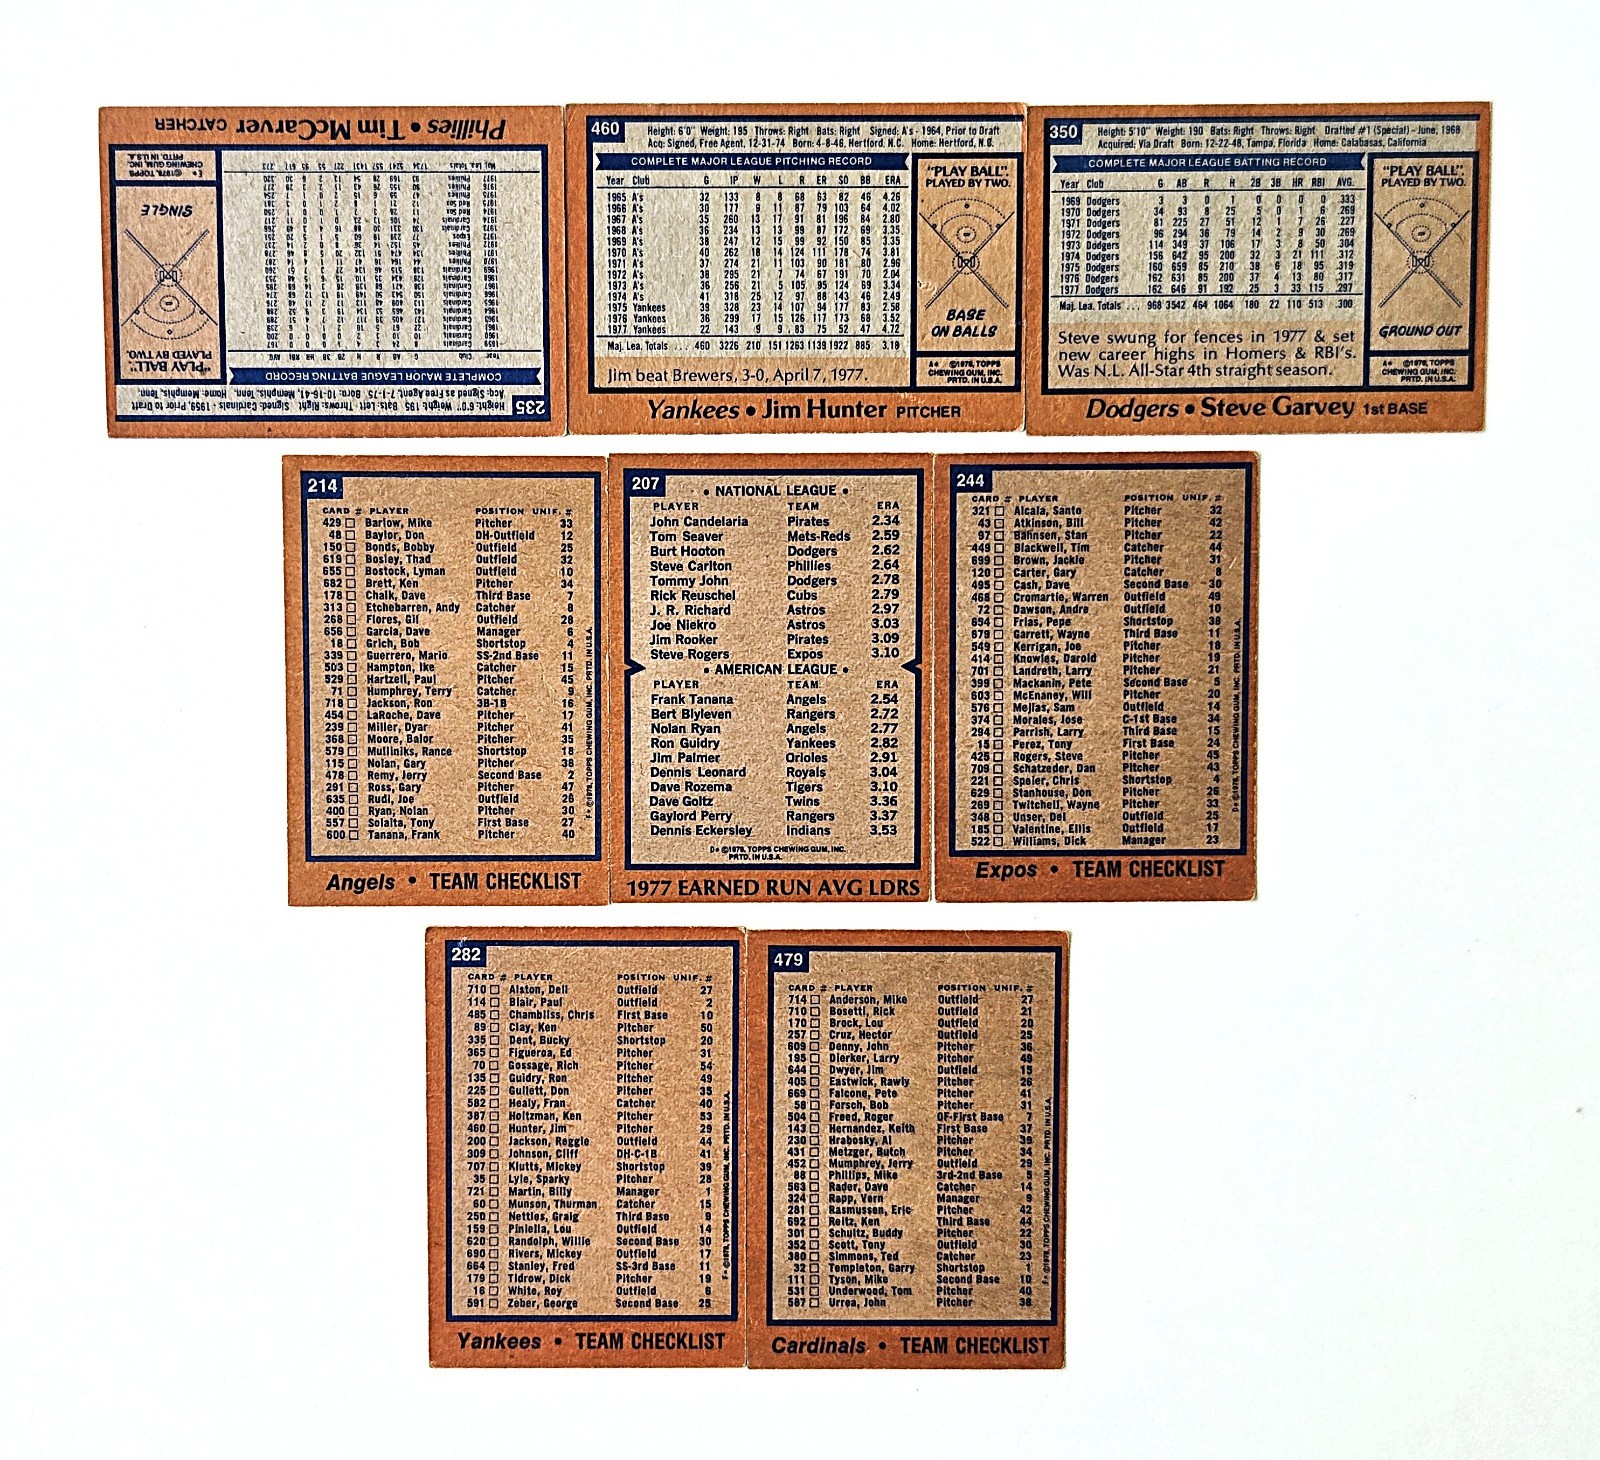 235
Height: 6'0" Weight: 195 Throws: Right Bats: Left Signed: Cardinals - 1959, Prior to Draft
Acq: Signed as Free Agent, 7-1-75 Born: 10-16-41, Memphis, Tenn. Home: Memphis, Tenn.
COMPLETE MAJOR LEAGUE BATTING RECORD
Year Club G AB R H 2B 3B HR RBI AVG.
Maj. Lea. Totals
"PLAY BALL".
PLAYED BY TWO.
SINGLE
E* ©1978, TOPPS
CHEWING GUM, INC.
PRTD. IN U.S.A.
Phillies • Tim McCarver CATCHER
460
Height: 6'0" Weight: 195 Throws: Right Bats: Right Signed: A's - 1964, Prior to Draft
Acq: Signed, Free Agent, 12-31-74 Born: 4-8-46, Hertford, N.C. Home: Hertford, N.C.
COMPLETE MAJOR LEAGUE PITCHING RECORD
Year Club G IP W L R ER SO BB ERA
1965 A's 32 133 8 8 68 63 82 46 4.26
1966 A's 30 177 9 11 87 79 103 64 4.02
1967 A's 35 260 13 17 91 81 196 84 2.80
1968 A's 36 234 13 13 99 87 172 69 3.35
1969 A's 38 247 12 15 99 92 150 85 3.35
1970 A's 40 262 18 14 124 111 178 74 3.81
1971 A's 37 274 21 11 103 90 181 80 2.96
1972 A's 38 295 21 7 74 67 191 70 2.04
1973 A's 36 256 21 5 105 95 124 69 3.34
1974 A's 41 318 25 12 97 88 143 46 2.49
1975 Yankees 39 328 23 14 107 94 177 83 2.58
1976 Yankees 36 299 17 15 126 117 173 68 3.52
1977 Yankees 22 143 9 9 83 75 52 47 4.72
Maj. Lea. Totals ... 460 3226 210 151 1263 1139 1922 885 3.18
Jim beat Brewers, 3-0, April 7, 1977.
"PLAY BALL".
PLAYED BY TWO.
BASE
ON BALLS
A* ©1978, TOPPS
CHEWING GUM, INC.
PRTD. IN U.S.A.
Yankees • Jim Hunter PITCHER
350
Height: 5'10" Weight: 190 Bats: Right Throws: Right Drafted #1 (Special) - June, 1968
Acquired: Via Draft Born: 12-22-48, Tampa, Florida Home: Calabasas, California
COMPLETE MAJOR LEAGUE BATTING RECORD
Year Club G AB R H 2B 3B HR RBI AVG.
1969 Dodgers 3 3 0 1 0 0 0 0 .333
1970 Dodgers 34 93 8 25 5 0 1 6 .269
1971 Dodgers 81 225 27 51 12 1 7 26 .227
1972 Dodgers 96 294 36 79 14 2 9 30 .269
1973 Dodgers 114 349 37 106 17 3 8 50 .304
1974 Dodgers 156 642 95 200 32 3 21 111 .312
1975 Dodgers 160 659 85 210 38 6 18 95 .319
1976 Dodgers 162 631 85 200 37 4 13 80 .317
1977 Dodgers 162 646 91 192 25 3 33 115 .297
Maj. Lea. Totals ... 968 3542 464 1064 180 22 110 513 .300
Steve swung for fences in 1977 & set
new career highs in Homers & RBI's.
Was N.L. All-Star 4th straight season.
"PLAY BALL".
PLAYED BY TWO.
GROUND OUT
A* ©1978, TOPPS
CHEWING GUM, INC.
PRTD. IN U.S.A.
Dodgers • Steve Garvey 1st BASE
214
CARD # PLAYER POSITION UNIF. #
429 Barlow, Mike Pitcher 33
48 Baylor, Don DH-Outfield 12
150 Bonds, Bobby Outfield 25
619 Bosley, Thad Outfield 32
655 Bostock, Lyman Outfield 10
682 Brett, Ken Pitcher 34
178 Chalk, Dave Third Base 7
313 Etchebarren, Andy Catcher 8
268 Flores, Gil Outfield 28
656 Garcia, Dave Manager 6
18 Grich, Bob Shortstop 4
339 Guerrero, Mario SS-2nd Base 11
503 Hampton, Ike Catcher 15
529 Hartzell, Paul Pitcher 45
71 Humphrey, Terry Catcher 9
718 Jackson, Ron 3B-1B 16
454 LaRoche, Dave Pitcher 17
239 Miller, Dyar Pitcher 41
368 Moore, Balor Pitcher 35
579 Mulliniks, Rance Shortstop 18
115 Nolan, Gary Pitcher 38
478 Remy, Jerry Second Base 2
291 Ross, Gary Pitcher 47
635 Rudi, Joe Outfield 26
400 Ryan, Nolan Pitcher 30
557 Solaita, Tony First Base 27
600 Tanana, Frank Pitcher 40
F* ©1978, TOPPS CHEWING GUM, INC. PRTD. IN U.S.A.
Angels • TEAM CHECKLIST
207
• NATIONAL LEAGUE •
PLAYER TEAM ERA
John Candelaria Pirates 2.34
Tom Seaver Mets-Reds 2.59
Burt Hooton Dodgers 2.62
Steve Carlton Phillies 2.64
Tommy John Dodgers 2.78
Rick Reuschel Cubs 2.79
J. R. Richard Astros 2.97
Joe Niekro Astros 3.03
Jim Rooker Pirates 3.09
Steve Rogers Expos 3.10
• AMERICAN LEAGUE •
PLAYER TEAM ERA
Frank Tanana Angels 2.54
Bert Blyleven Rangers 2.72
Nolan Ryan Angels 2.77
Ron Guidry Yankees 2.82
Jim Palmer Orioles 2.91
Dennis Leonard Royals 3.04
Dave Rozema Tigers 3.10
Dave Goltz Twins 3.36
Gaylord Perry Rangers 3.37
Dennis Eckersley Indians 3.53
D* ©1978, TOPPS CHEWING GUM, INC.
PRTD. IN U.S.A.
1977 EARNED RUN AVG LDRS
244
CARD # PLAYER POSITION UNIF. #
321 Alcala, Santo Pitcher 32
43 Atkinson, Bill Pitcher 42
97 Bahnsen, Stan Pitcher 22
449 Blackwell, Tim Catcher 44
699 Brown, Jackie Pitcher 31
120 Carter, Gary Catcher 8
495 Cash, Dave Second Base 30
468 Cromartie, Warren Outfield 49
72 Dawson, Andre Outfield 10
654 Frias, Pepe Shortstop 38
679 Garrett, Wayne Third Base 11
549 Kerrigan, Joe Pitcher 18
414 Knowles, Darold Pitcher 19
701 Landreth, Larry Pitcher 21
399 Mackanin, Pete Second Base 5
603 McEnaney, Will Pitcher 20
576 Mejias, Sam Outfield 14
374 Morales, Jose C-1st Base 34
294 Parrish, Larry Third Base 15
15 Perez, Tony First Base 24
425 Rogers, Steve Pitcher 45
709 Schatzeder, Dan Pitcher 43
221 Speier, Chris Shortstop 4
629 Stanhouse, Don Pitcher 26
269 Twitchell, Wayne Pitcher 33
348 Unser, Del Outfield 25
185 Valentine, Ellis Outfield 17
522 Williams, Dick Manager 23
D* ©1978, TOPPS CHEWING GUM, INC. PRTD. IN U.S.A.
Expos • TEAM CHECKLIST
282
CARD # PLAYER POSITION UNIF. #
710 Alston, Dell Outfield 27
114 Blair, Paul Outfield 2
485 Chambliss, Chris First Base 10
89 Clay, Ken Pitcher 50
335 Dent, Bucky Shortstop 20
365 Figueroa, Ed Pitcher 31
70 Gossage, Rich Pitcher 54
135 Guidry, Ron Pitcher 49
225 Gullett, Don Pitcher 35
582 Healy, Fran Catcher 40
387 Holtzman, Ken Pitcher 53
460 Hunter, Jim Pitcher 29
200 Jackson, Reggie Outfield 44
309 Johnson, Cliff DH-C-1B 41
707 Klutts, Mickey Shortstop 39
35 Lyle, Sparky Pitcher 28
721 Martin, Billy Manager 1
60 Munson, Thurman Catcher 15
250 Nettles, Graig Third Base 9
159 Piniella, Lou Outfield 14
620 Randolph, Willie Second Base 30
690 Rivers, Mickey Outfield 17
664 Stanley, Fred SS-3rd Base 11
179 Tidrow, Dick Pitcher 19
16 White, Roy Outfield 6
591 Zeber, George Second Base 25
F* ©1978, TOPPS CHEWING GUM, INC. PRTD. IN U.S.A.
Yankees • TEAM CHECKLIST
479
CARD # PLAYER POSITION UNIF. #
714 Anderson, Mike Outfield 27
710 Bosetti, Rick Outfield 21
170 Brock, Lou Outfield 20
257 Cruz, Hector Outfield 25
609 Denny, John Pitcher 36
195 Dierker, Larry Pitcher 49
644 Dwyer, Jim Outfield 15
405 Eastwick, Rawly Pitcher 26
669 Falcone, Pete Pitcher 41
58 Forsch, Bob Pitcher 31
504 Freed, Roger OF-First Base 7
143 Hernandez, Keith First Base 37
230 Hrabosky, Al Pitcher 39
431 Metzger, Butch Pitcher 34
452 Mumphrey, Jerry Outfield 29
88 Phillips, Mike 3rd-2nd Base 5
563 Rader, Dave Catcher 14
324 Rapp, Vern Manager 9
281 Rasmussen, Eric Pitcher 42
692 Reitz, Ken Third Base 44
301 Schultz, Buddy Pitcher 22
352 Scott, Tony Outfield 30
380 Simmons, Ted Catcher 23
32 Templeton, Garry Shortstop 1
111 Tyson, Mike Second Base 10
531 Underwood, Tom Pitcher 40
587 Urrea, John Pitcher 38
F* ©1978, TOPPS CHEWING GUM, INC. PRTD. IN U.S.A.
Cardinals • TEAM CHECKLIST